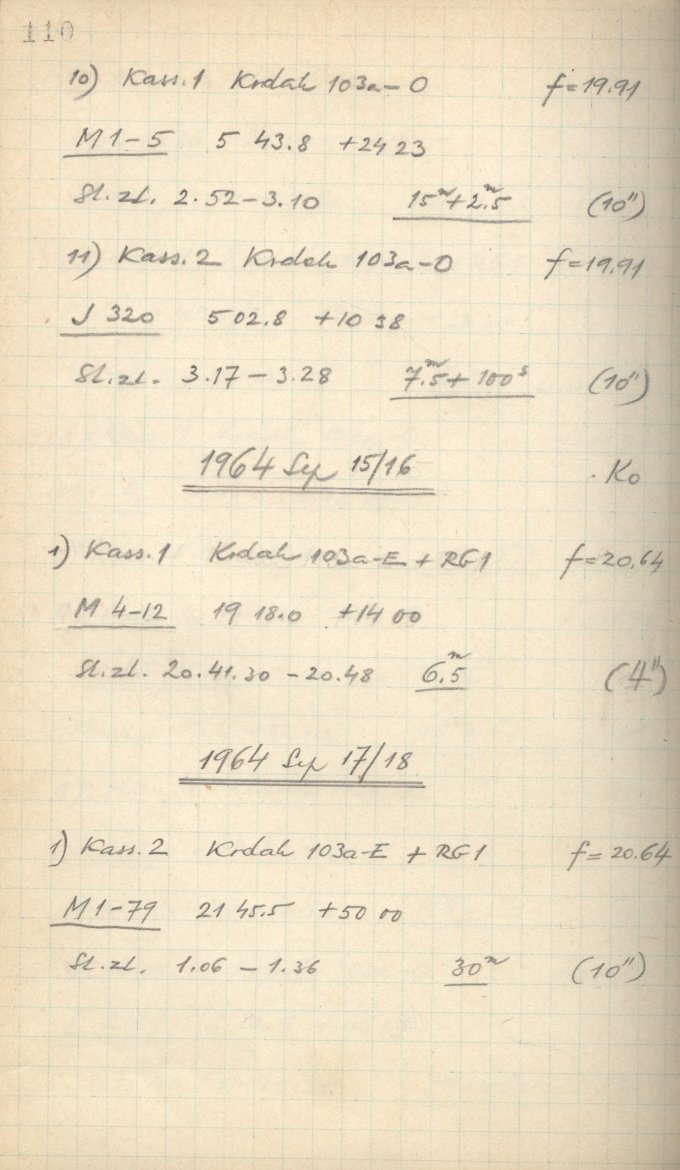 110
10) Kass. 1 Kodak 103a-O f=19.91
M 1-5 5 43.8 +24 23
St. zt. 2.52-3.10 15ᵐ+2ᵐ.5 (10")
11) Kass. 2 Kodak 103a-O f=19.91
J 320 5 02.8 +10 38
St. zt. 3.17-3.28 7ᵐ.5+100ˢ (10")
1964 Sep 15/16 Ko
1) Kass. 1 Kodak 103a-E + RG1 f=20.64
M 4-12 19 18.0 +14 00
St. zt. 20.41.30 - 20.48 6ᵐ.5 (4")
1964 Sep 17/18
1) Kass. 2 Kodak 103a-E + RG1 f=20.64
M 1-79 21 45.5 +50 00
St. zt. 1.06 - 1.36 30ᵐ (10")